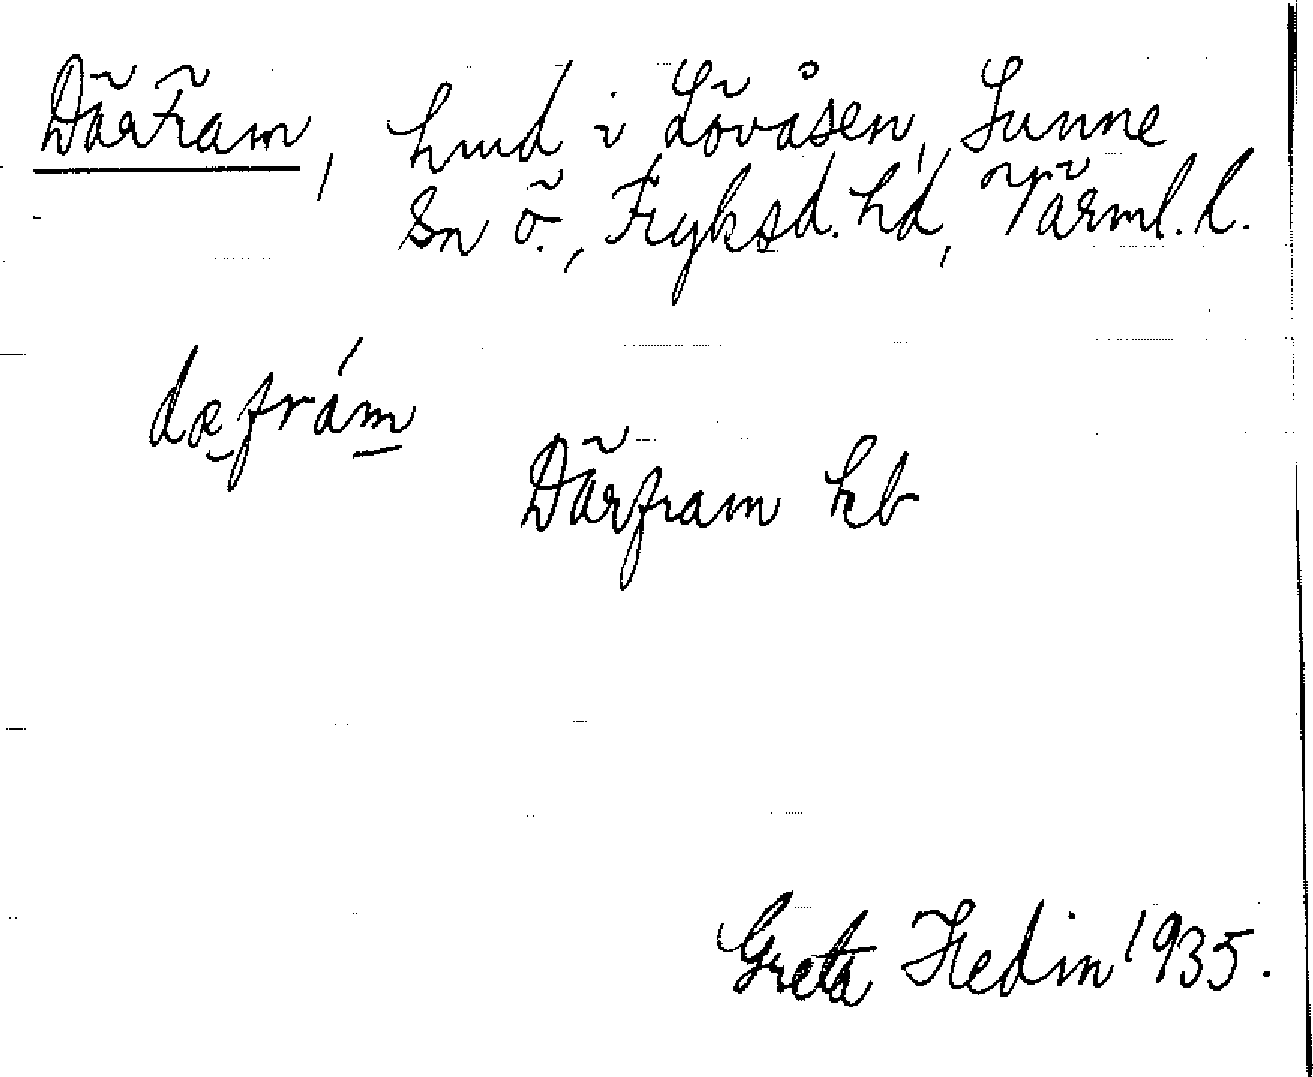 DärFram, hmd i Lövåsen, Sunne
sn ö., Fryksd. hd, Värml. l.
dæfrám
Därfram kb
Greta Hedin 1935.